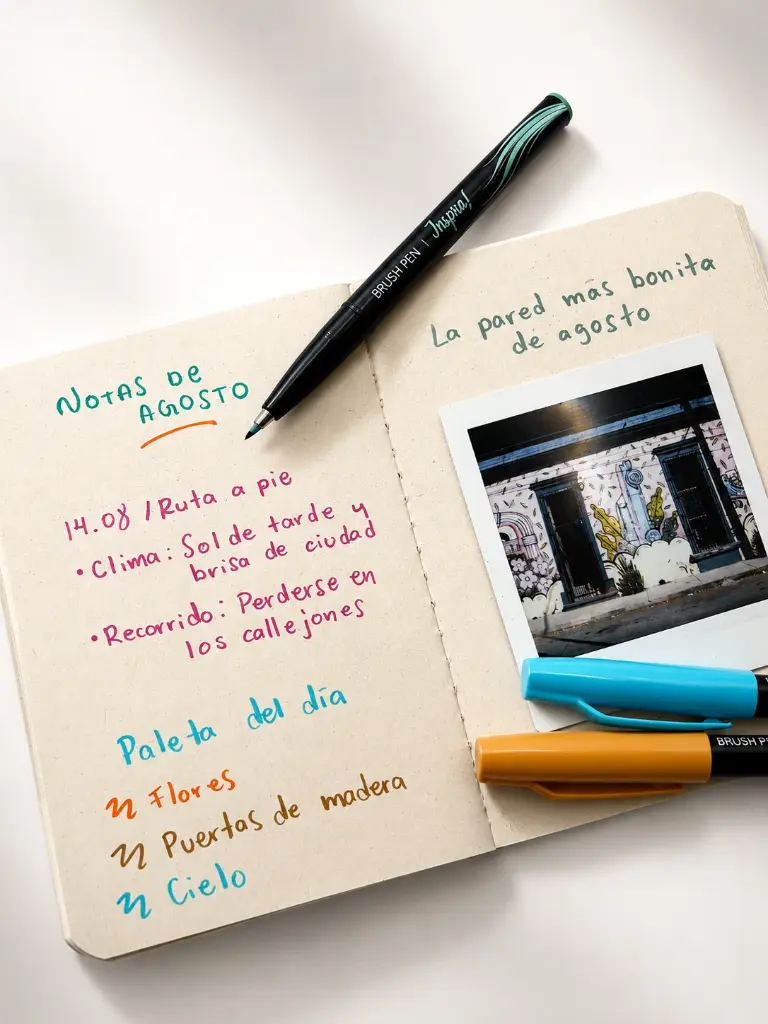 BRUSH PEN | Inspira!
NOTAS DE
AGOSTO
14.08 / Ruta a pie
• Clima: Sol de tarde y
brisa de ciudad
• Recorrido: Perderse en
los callejones
Paleta del día
Flores
Puertas de madera
Cielo
La pared más bonita
de agosto
BRUSH P